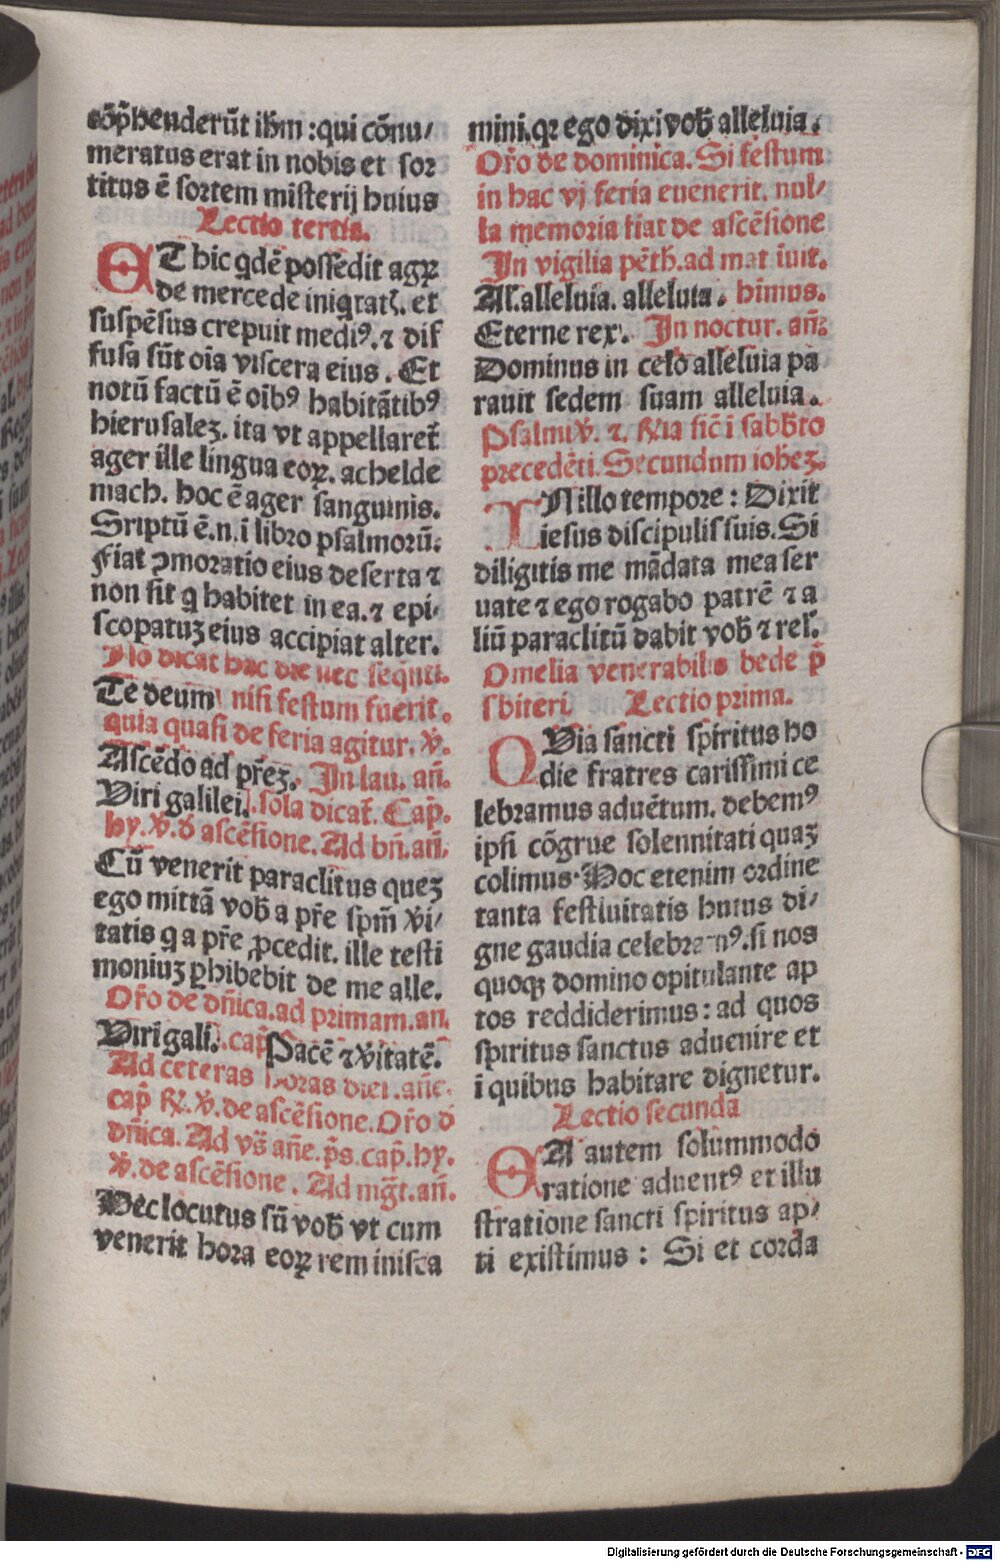 cōp̄henderūt ihm̄ : qui cōnu/
meratus erat in nobis et sor
titus ē sortem misterij huius
Lectio tertia.
ET hic qdē possedit agꝝ
de mercede iniqtatꝭ. et
suspēsus crepuit mediꝰ. ⁊ dif
fusa sūt oīa viscera eius . Et
notū factū ē oībꝰ habitātibꝰ
hierusaleꝫ. ita vt appellaret̄
ager ille lingua eoꝝ. achelde
mach. hoc ē ager sanguinis.
Sriptū ē.n. i libro psalmorū:
Fiat ꝯmoratio eius deserta ⁊
non sit q habitet in ea. ⁊ epi/
scopatuꝫ eius accipiat alter.
No dicat hac die nec sequti.
Te deum nisi festum fuerit.
quia quasi de feria agitur. ꝟ.
Ascēdo ad pr̄eꝫ. In lau. an̄.
Viri galilei. sola dicat̄. Cap̄.
hy. ꝟ. d̄ ascēsione. Ad bn̄. an̄.
Cū venerit paraclitus queꝫ
ego mittā vob̄ a pr̄e spm̄ ꝟi/
tatis q a pr̄e ꝓcedit. ille testi
moniuꝫ ꝑhibebit de me alle.
Or̄o de dn̄ica. ad primam. an.
Viri gali. cap̄ Pacē ⁊ ꝟitatē.
Ad ceteras horas diei . an̄e.
cap̄ ꝶ. ꝟ. de ascēsione. Or̄o d̄
dn̄ica. Ad vs̄ an̄e. p̄s. cap̄. hy.
ꝟ. de ascēsione . Ad mḡt. an̄.
Hec locutus sū vob̄ vt cum
venerit hora eoꝝ reminisca
mini. qꝛ ego dixi vob̄ alleluia.
Or̄o de dominica. Si festum
in hac vj feria euenerit. nul/
la memoria fiat de ascēsione
In vigilia pēth. ad mat iuit.
Al̄. alleluia. alleluia. himus.
Eterne rex. In noctur. an̄:
Dominus in celo alleluia pa
rauit sedem suam alleluia.
Psalmi ꝟ. ⁊. ꝶia sic̄ i sabb̄to
precedēti. Secundum ioheꝫ.
INillo tempore : Dixit
iesus discipulis suis. Si
diligitis me mādata mea ser
uate ⁊ ego rogabo patrē ⁊ a
liū paraclitū dabit vob̄ ⁊ rel̄.
Omelia venerabilis bede p̄
sbiteri Lectio prima.
QVia sancti spiritus ho
die fratres carissimi ce
lebramus aduētum. debemꝰ
ipsi cōgrue solennitati quaꝫ
colimus. Hoc etenim ordine
tanta festiuitatis huius di/
gne gaudia celebramꝰ. si nos
quoqꝫ domino opitulante ap
tos reddiderimus : ad quos
spiritus sanctus aduenire et
ī quibus habitare dignetur.
Lectio secunda
EA autem solummodo
ratione aduentꝰ et illu
stratione sancti spiritus ap/
ti existimus : Si et corda
Digitalisierung gefördert durch die Deutsche Forschungsgemeinschaft - DFG